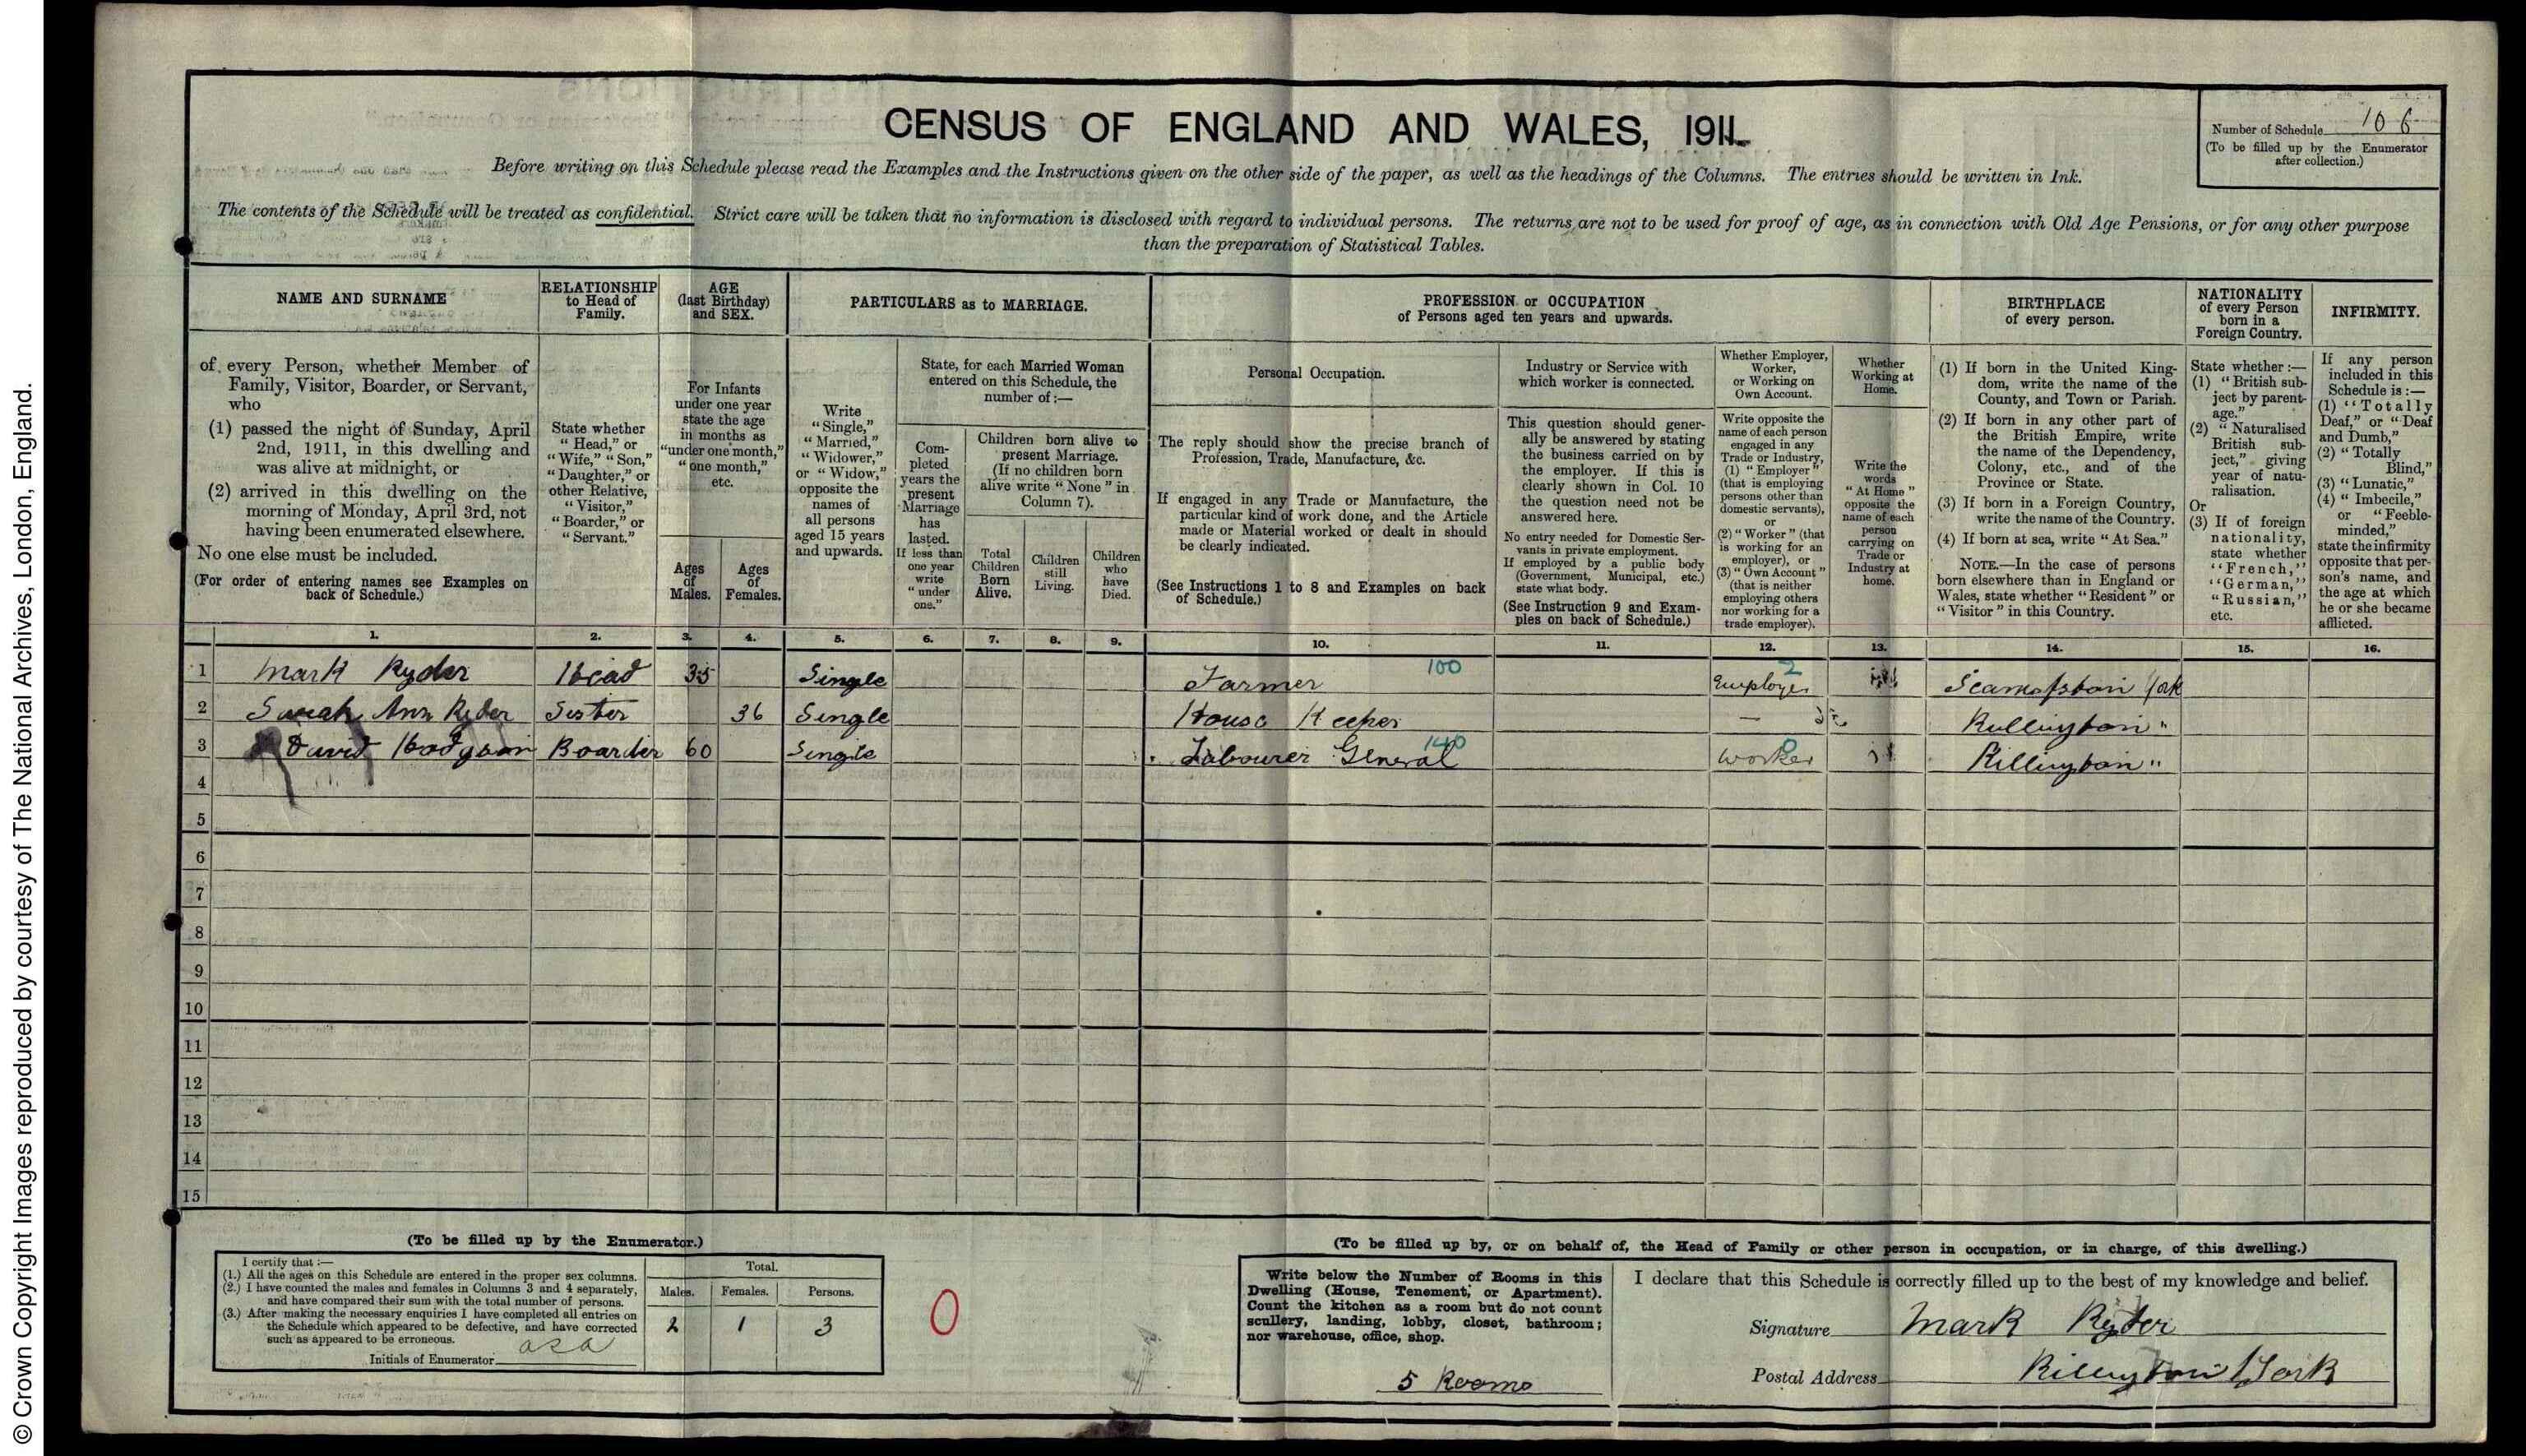 © Crown Copyright Images reproduced by courtesy of The National Archives, London, England.
CENSUS OF ENGLAND AND WALES, 1911.
Number of Schedule 106
(To be filled up by the Enumerator
after collection.)
Before writing on this Schedule please read the Examples and the Instructions given on the other side of the paper, as well as the headings of the Columns. The entries should be written in Ink.
The contents of the Schedule will be treated as confidential. Strict care will be taken that no information is disclosed with regard to individual persons. The returns are not to be used for proof of age, as in connection with Old Age Pensions, or for any other purpose
than the preparation of Statistical Tables.
NAME AND SURNAME
of every Person, whether Member of
Family, Visitor, Boarder, or Servant,
who
(1) passed the night of Sunday, April
2nd, 1911, in this dwelling and
was alive at midnight, or
(2) arrived in this dwelling on the
morning of Monday, April 3rd, not
having been enumerated elsewhere.
No one else must be included.
(For order of entering names see Examples on
back of Schedule.)
RELATIONSHIP
to Head of
Family.
State whether
"Head," or
"Wife," "Son,"
"Daughter," or
other Relative,
"Visitor,"
"Boarder," or
"Servant."
AGE
(last Birthday)
and SEX.
For Infants
under one year
state the age
in months as
"under one month,"
"one month,"
etc.
Ages
of
Males.
Ages
of
Females.
PARTICULARS as to MARRIAGE.
Write
"Single,"
"Married,"
"Widower,"
or "Widow,"
opposite the
names of
all persons
aged 15 years
and upwards.
State, for each Married Woman
entered on this Schedule, the
number of :—
Com-
pleted
years the
present
Marriage
has
lasted.
If less than
one year
write
"under
one."
Children born alive to
present Marriage.
(If no children born
alive write "None" in
Column 7).
Total
Children
Born
Alive.
Children
still
Living.
Children
who
have
Died.
PROFESSION or OCCUPATION
of Persons aged ten years and upwards.
Personal Occupation.
The reply should show the precise branch of
Profession, Trade, Manufacture, &c.
If engaged in any Trade or Manufacture, the
particular kind of work done, and the Article
made or Material worked or dealt in should
be clearly indicated.
(See Instructions 1 to 8 and Examples on back
of Schedule.)
Industry or Service with
which worker is connected.
This question should gener-
ally be answered by stating
the business carried on by
the employer. If this is
clearly shown in Col. 10
the question need not be
answered here.
No entry needed for Domestic Ser-
vants in private employment.
If employed by a public body
(Government, Municipal, etc.)
state what body.
(See Instruction 9 and Exam-
ples on back of Schedule.)
Whether Employer,
Worker,
or Working on
Own Account.
Write opposite the
name of each person
engaged in any
Trade or Industry,
(1) "Employer"
(that is employing
persons other than
domestic servants),
or
(2) "Worker" (that
is working for an
employer), or
(3) "Own Account"
(that is neither
employing others
nor working for a
trade employer).
Whether
Working at
Home.
Write the
words
"At Home"
opposite the
name of each
person
carrying on
Trade or
Industry at
home.
BIRTHPLACE
of every person.
(1) If born in the United King-
dom, write the name of the
County, and Town or Parish.
(2) If born in any other part of
the British Empire, write
the name of the Dependency,
Colony, etc., and of the
Province or State.
(3) If born in a Foreign Country,
write the name of the Country.
(4) If born at sea, write "At Sea."
NOTE.—In the case of persons
born elsewhere than in England or
Wales, state whether "Resident" or
"Visitor" in this Country.
NATIONALITY
of every Person
born in a
Foreign Country.
State whether :—
(1) "British sub-
ject by parent-
age."
(2) "Naturalised
British sub-
ject," giving
year of natu-
ralisation.
Or
(3) If of foreign
nationality,
state whether
"French,"
"German,"
"Russian,"
etc.
INFIRMITY.
If any person
included in this
Schedule is :—
(1) "Totally
Deaf," or "Deaf
and Dumb,"
(2) "Totally
Blind,"
(3) "Lunatic,"
(4) "Imbecile,"
or "Feeble-
minded,"
state the infirmity
opposite that per-
son's name, and
the age at which
he or she became
afflicted.
1. 2. 3. 4. 5. 6. 7. 8. 9. 10. 11. 12. 13. 14. 15. 16.
1 Mark Ryder Head 35 Single Farmer 100 Employer 2 Scampston York
2 Sarah Ann Ryder Sister 36 Single House Keeper — Rillington "
3 David Hodgson Boarder 60 Single Labourer General 140 Worker Rillington "
4
5
6
7
8
9
10
11
12
13
14
15
(To be filled up by the Enumerator.)
I certify that :—
(1.) All the ages on this Schedule are entered in the proper sex columns.
(2.) I have counted the males and females in Columns 3 and 4 separately,
and have compared their sum with the total number of persons.
(3.) After making the necessary enquiries I have completed all entries on
the Schedule which appeared to be defective, and have corrected
such as appeared to be erroneous.
Initials of Enumerator
Total.
Males. Females. Persons.
2 1 3
0
(To be filled up by, or on behalf of, the Head of Family or other person in occupation, or in charge, of this dwelling.)
Write below the Number of Rooms in this
Dwelling (House, Tenement, or Apartment).
Count the kitchen as a room but do not count
scullery, landing, lobby, closet, bathroom;
nor warehouse, office, shop.
5 Rooms
I declare that this Schedule is correctly filled up to the best of my knowledge and belief.
Signature Mark Ryder
Postal Address Rillington York